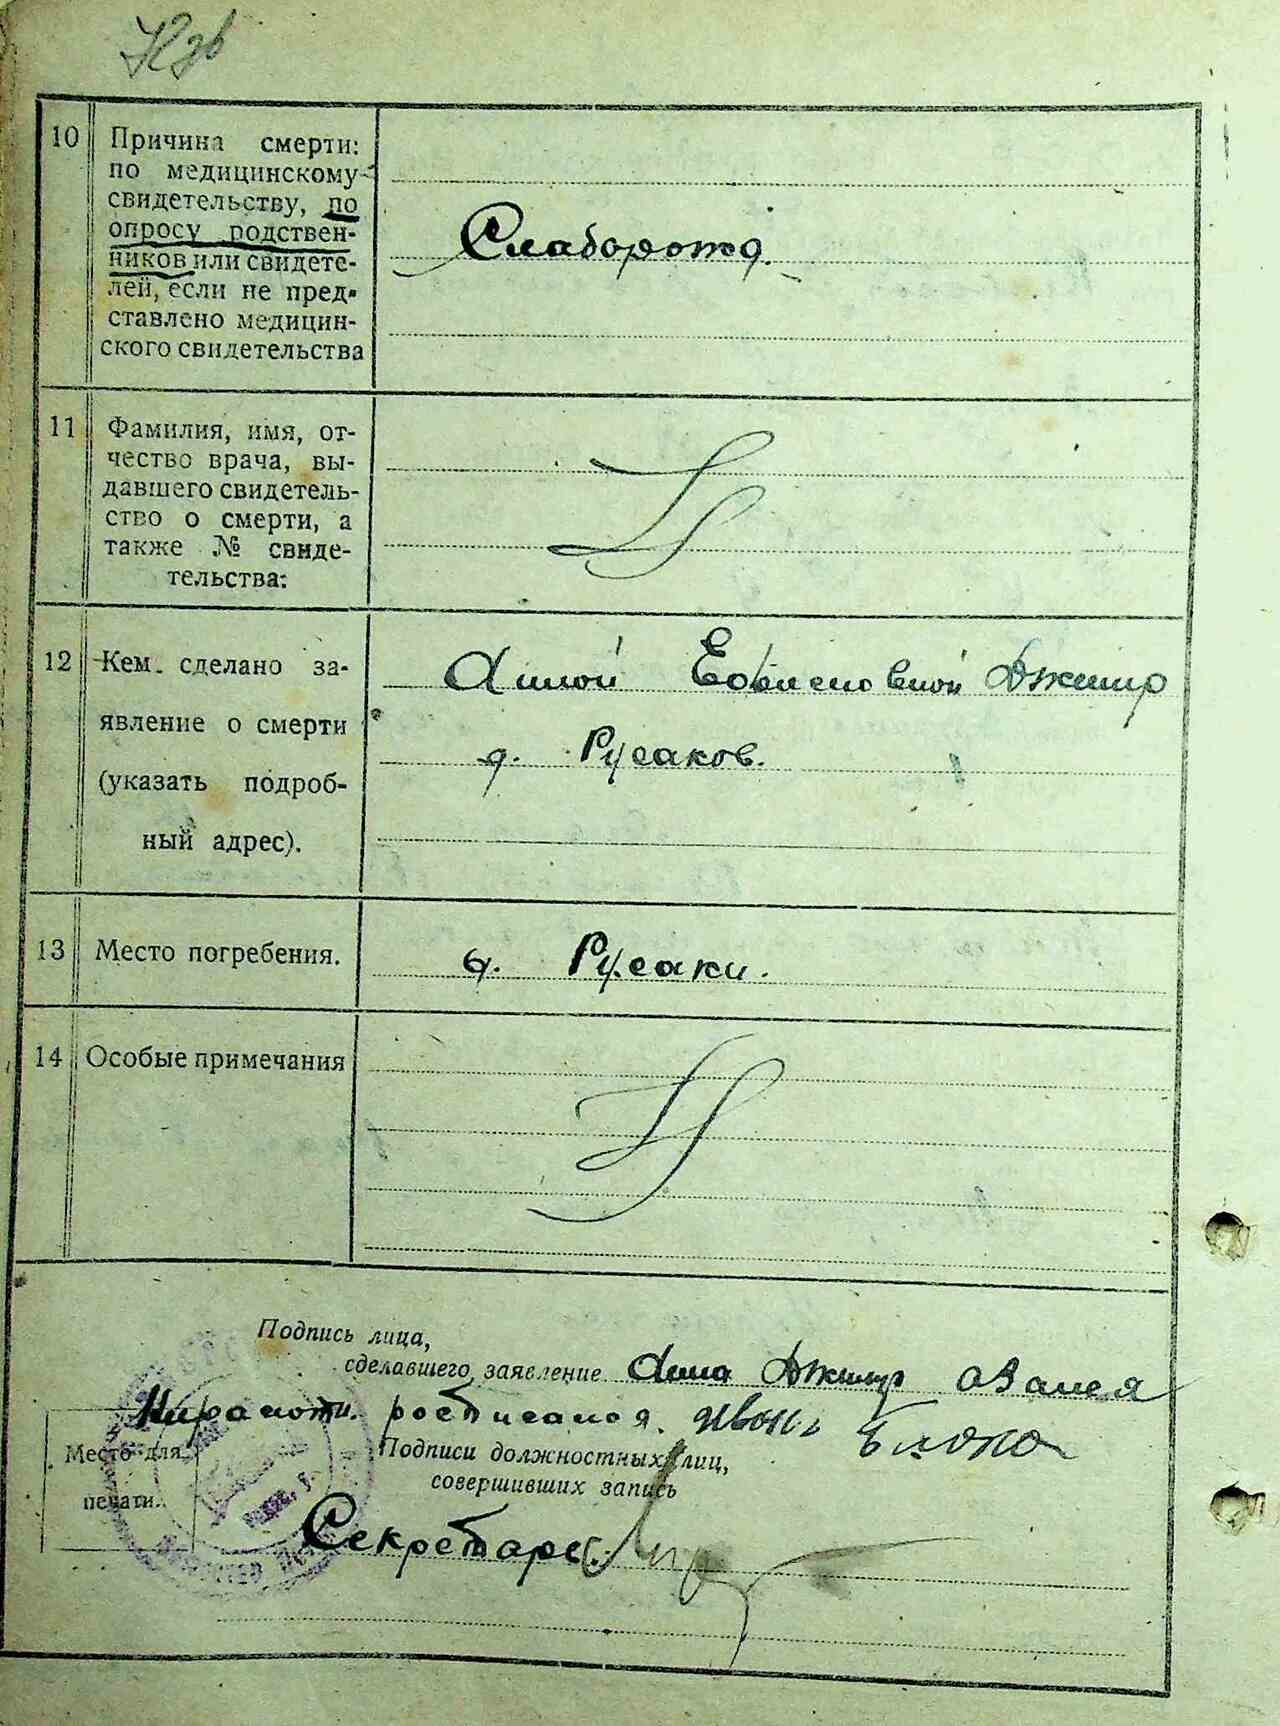 10 Причина смерти:
по медицинскому
свидетельству, по
опросу родствен-
ников или свидете-
лей, если не пред-
ставлено медицин-
ского свидетельства
Слаборожд.
11 Фамилия, имя, от-
чество врача, вы-
давшего свидетель-
ство о смерти, а
также № свиде-
тельства:
12 Кем сделано за-
явление о смерти
(указать подроб-
ный адрес).
Анной
д. Русаков.
13 Место погребения.
д. Русаки.
14 Особые примечания
Подпись лица,
сделавшего заявление Анна
росписалося
Место для
печати.
Подписи должностных лиц,
совершивших запись
Секретарь